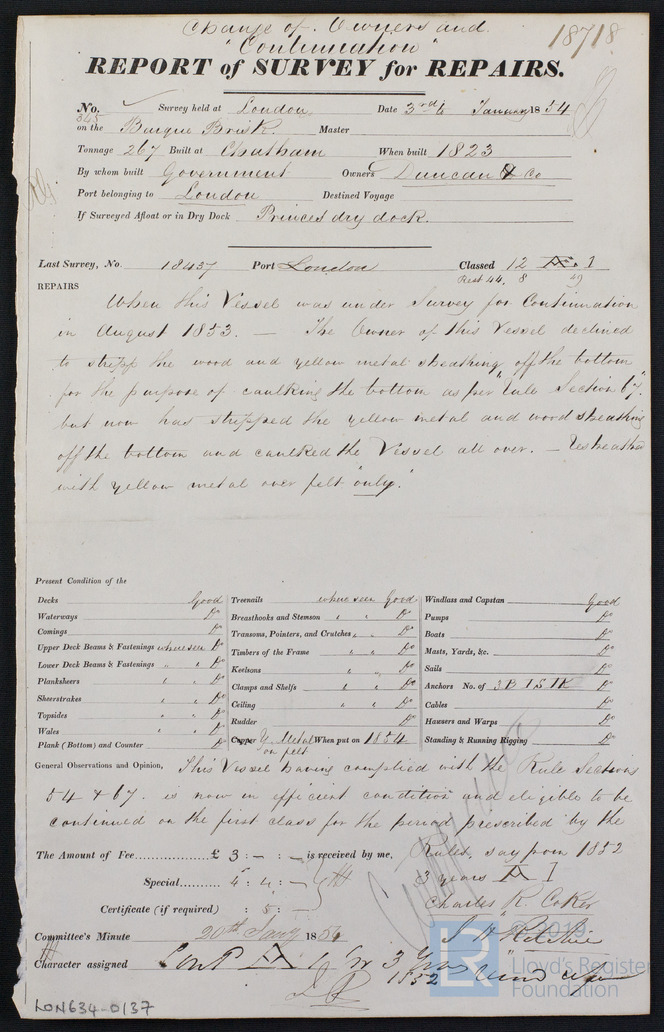 Change of Owners and
"Continuation"
18718
REPORT of SURVEY for REPAIRS.
No. 345 Survey held at London Date 3rd & January 1854
on the Barque Brisk. Master
Tonnage 267 Built at Chatham When built 1823
By whom built Government Owners Duncan & Co
Port belonging to London Destined Voyage
If Surveyed Afloat or in Dry Dock Princes dry dock.
Last Survey, No. 18437 Port London Classed 12 A 1
Rest 44, 8
REPAIRS
When this Vessel was under Survey for Continuation
in August 1853. — The Owner of this Vessel declined
to stripp the wood and yellow metal sheathing off the bottom
for the purpose of caulking the bottom as per "Rule Section 67".
but now has stripped the yellow metal and wood sheathing
off the bottom and caulked the Vessel all over. — Resheathed
with yellow metal over felt "only."
Present Condition of the
Decks Good
Waterways Do
Comings Do
Upper Deck Beams & Fastenings where seen Do
Lower Deck Beams & Fastenings " " Do
Planksheers " " Do
Sheerstrakes " " Do
Topsides " " Do
Wales Do
Plank (Bottom) and Counter Do
Treenails where seen Good
Breasthooks and Stemson " " Do
Transoms, Pointers, and Crutches " " Do
Timbers of the Frame " " Do
Keelsons " " Do
Clamps and Shelfs " " Do
Ceiling " " Do
Rudder Do
Copper Y. Metal When put on 1854
on felt
Windlass and Capstan Good
Pumps Do
Boats Do
Masts, Yards, &c. Do
Sails Do
Anchors No. of 3B 1S 1K Do
Cables Do
Hawsers and Warps Do
Standing & Running Rigging Do
General Observations and Opinion, This Vessel having complied with the Rule Sections
54 & 67. is now in efficient condition and eligible to be
continued on the first class for the period prescribed by the
Rules, say from 1852
3 years A 1
The Amount of Fee £ 3 : - : - is received by me,
Special 4 : 4 : -
Certificate (if required) : 5 : -
Charles R. Coker
J H Ritchie
Committee's Minute 20th Jany 1854
Character assigned Cont A 1 for 3 Years
1852
LON634-0137
© 2019
LR
Lloyd's Register
Foundation